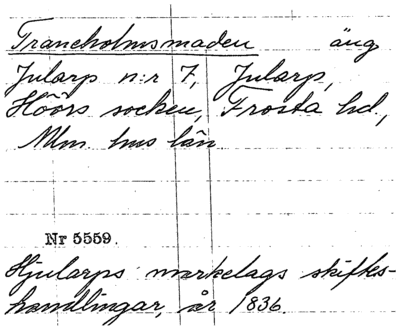 Traneholmsmaden äng
Jularp n:r 7, Jularp,
Höörs socken, Frosta hd.,
Mlm. hus län
Nr 5559.
Hjularps markelags skiftes-
handlingar, år 1836.